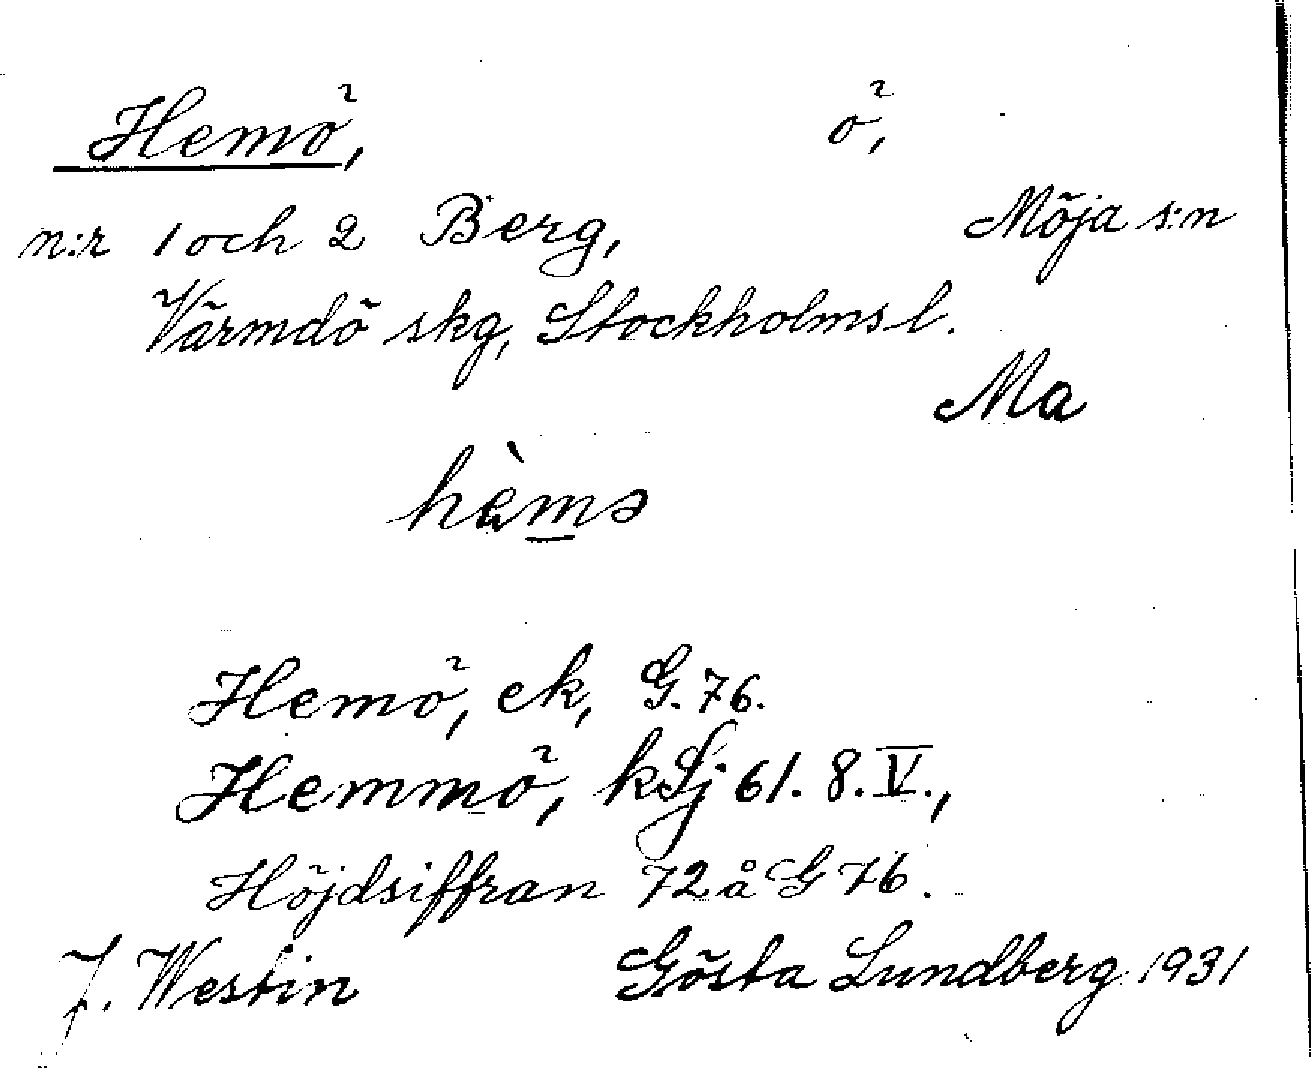 Hemö, ö,
n:r 1 och 2 Berg, Möja s:n
Värmdö skg, Stockholms l.
Ma
hèmə
Hemö, ek, G. 76.
Hemmö, kSj 61. 8. V.,
Höjdsiffran 72 å G 76.
J. Westin Gösta Lundberg 1931